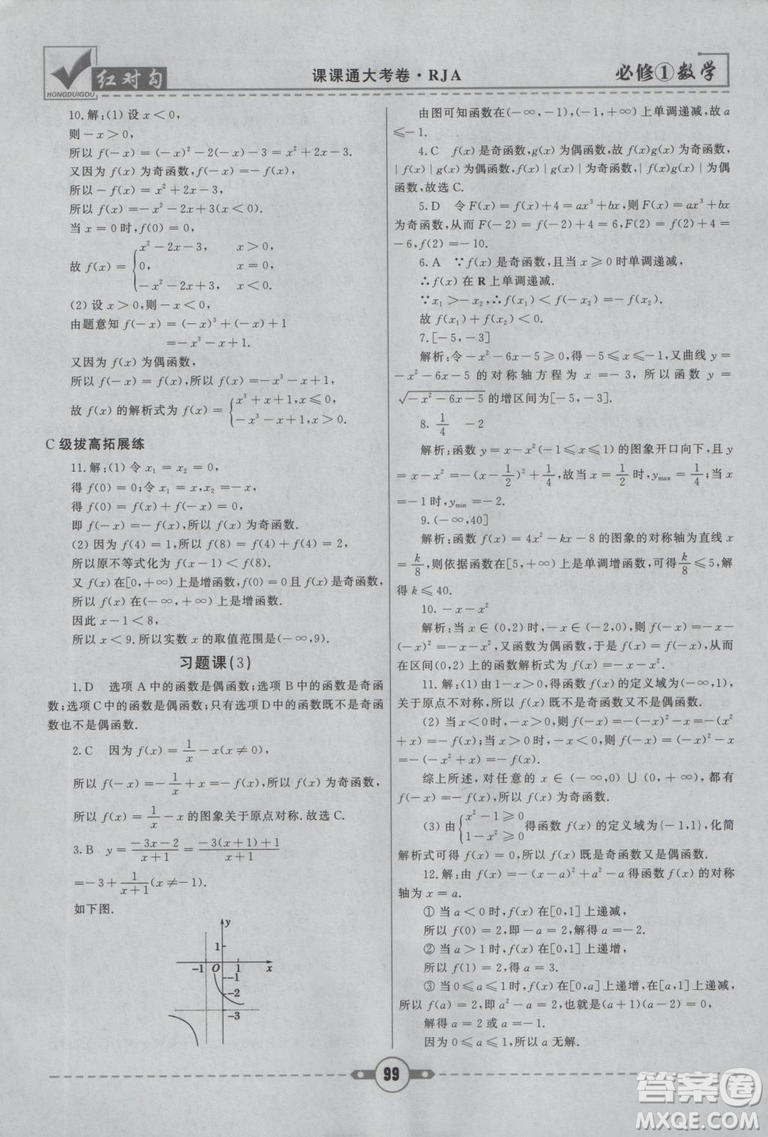 红对勾
HONGDUIGOU
课课通大考卷·RJA
必修①数学
10.解:(1) 设 x<0,
则-x>0,
所以 f(-x)=(-x)²-2(-x)-3=x²+2x-3
又因为 f(x)为奇函数,f(-x)=-f(x)
所以-f(x)=x²+2x-3
所以 f(x)=-x²-2x+3(x<0).
当 x=0 时,f(0)=0,
故 f(x)={x²-2x-3, x>0
0, x=0
-x²-2x+3, x<0
(2) 设 x>0,则-x<0.
由题意知 f(-x)=(-x)³+(-x)+1
=-x³-x+1
又因为 f(x)为偶函数,
所以 f(-x)=f(x)
所以 f(x)=-x³-x+1
故 f(x)的解析式为 f(x)={x³+x+1,x≤0
-x³-x+1,x>0
C 级拔高拓展练
11.解:(1) 令 x₁=x₂=0,
得 f(0)=0;令 x₁=x,x₂=-x,
得 f(0)=f(x)+f(-x)=0,
即 f(-x)=-f(x),所以 f(x)为奇函数.
(2) 因为 f(4)=1,所以 f(8)=f(4)+f(4)=2,
所以原不等式化为 f(x-1)<f(8).
又 f(x)在[0,+∞)上是增函数,f(0)=0 且 f(x)是奇函数,
所以 f(x)在(-∞,+∞)上是增函数.
因此 x-1<8,
所以 x<9.所以实数 x 的取值范围是(-∞,9).
习题课(3)
1.D 选项 A 中的函数是偶函数;选项 B 中的函数是奇函
数;选项 C 中的函数是偶函数;只有选项 D 中的函数既不是奇函
数也不是偶函数.
2.C 因为 f(x)=1/x-x(x≠0),
所以 f(-x)=-1/x+x=-f(x),所以 f(x)为奇函数,
所以 f(x)=1/x-x 的图象关于原点对称.故选 C.
3.B y=(-3x-2)/(x+1)=(-3(x+1)+1)/(x+1)
=-3+1/(x+1)(x≠-1).
如下图.
y
1
-1 O 1 x
-2
-3
由图可知函数在(-∞,-1),(-1,+∞)上单调递减,故 a
≤-1.
4.C f(x)是奇函数,g(x)为偶函数,故 f(x)g(x)为奇函数,
|f(x)|g(x)为偶函数,f(x)|g(x)|为奇函数,|f(x)g(x)|为偶
函数,故选 C.
5.D 令 F(x)=f(x)+4=ax³+bx,则 F(x)=ax³+bx
为奇函数,从而 F(-2)=f(-2)+4=6,F(2)=f(2)+4=
-6,f(2)=-10.
6.A ∵f(x)是奇函数,且当 x≥0 时单调递减,
∴f(x)在 R 上单调递减.
∵x₁>-x₂,∴f(x₁)<f(-x₂)=-f(x₂).
故 f(x₁)+f(x₂)<0.
7.[-5,-3]
解析:令-x²-6x-5≥0,得-5≤x≤-1,又曲线 y
=-x²-6x-5 的对称轴方程为 x=-3.所以函数 y=
√(-x²-6x-5)的增区间为[-5,-3].
8.1/4 -2
解析:函数 y=-x²+x(-1≤x≤1)的图象开口向下,且
y=-x²+x=-(x-1/2)²+1/4,故当 x=1/2时,yₘₐₓ=1/4;当 x
=-1 时,yₘᵢₙ=-2.
9.(-∞,40]
解析:函数 f(x)=4x²-kx-8 的图象的对称轴为直线 x
=k/8,则依据函数在[5,+∞)上是单调增函数,可得 k/8≤5,解得 k
≤40.
10.-x-x²
解析:当 x∈(0,2)时,-x∈(-2,0),所以 f(-x)=-x-
(-x)²=-x-x²,又函数为偶函数,于是 f(x)=-x-x²,即函数
在区间(0,2)上的函数解析式为 f(x)=-x-x².
11.解析:(1) 由 1-x>0,得函数的定义域为(-∞,1),
关于原点不对称,所以 f(x)既不是奇函数又不是偶函数.
(2) 当 x>0 时,-x<0,则 f(-x)=-(-x)²-x=-(x²
+x)=-f(x),
当 x<0 时,-x>0,则 f(-x)=(-x)²-x=x²-x=-(-x²
+x)=-f(x).
综上所述,对任意的 x∈(-∞,0)∪(0,+∞),都有
f(-x)=-f(x),所以 f(x)为奇函数.
(3) 由{x²-1≥0
1-x²≥0得函数的定义域为{-1,1},化简
解析式可得 f(x)=0,所以 f(x)既是奇函数又是偶函数.
12.解:由 f(x)=-(x-a)²+a²-a+1,得函数 f(x)的对
称轴为 x=a.
① 当 a<0 时,f(x)在[0,1]上递减,
所以 f(0)=2,即 1-a=2,所以 a=-1.
② 当 a>1 时,f(x)在[0,1]上递增,
所以 f(1)=2,即 a=2.
③ 当 0≤a≤1 时,f(x)在[0,a]上递增,在[a,1]上递减,
所以 f(a)=2,即 a²-a+1=2,
解得 a=(1±√5)/2,与 0≤a≤1 矛盾.
综上,a=-1 或 a=2.
99
答案圈
MXQE.COM